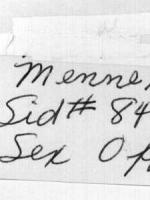 Menne
Sid# 84
Sex Of